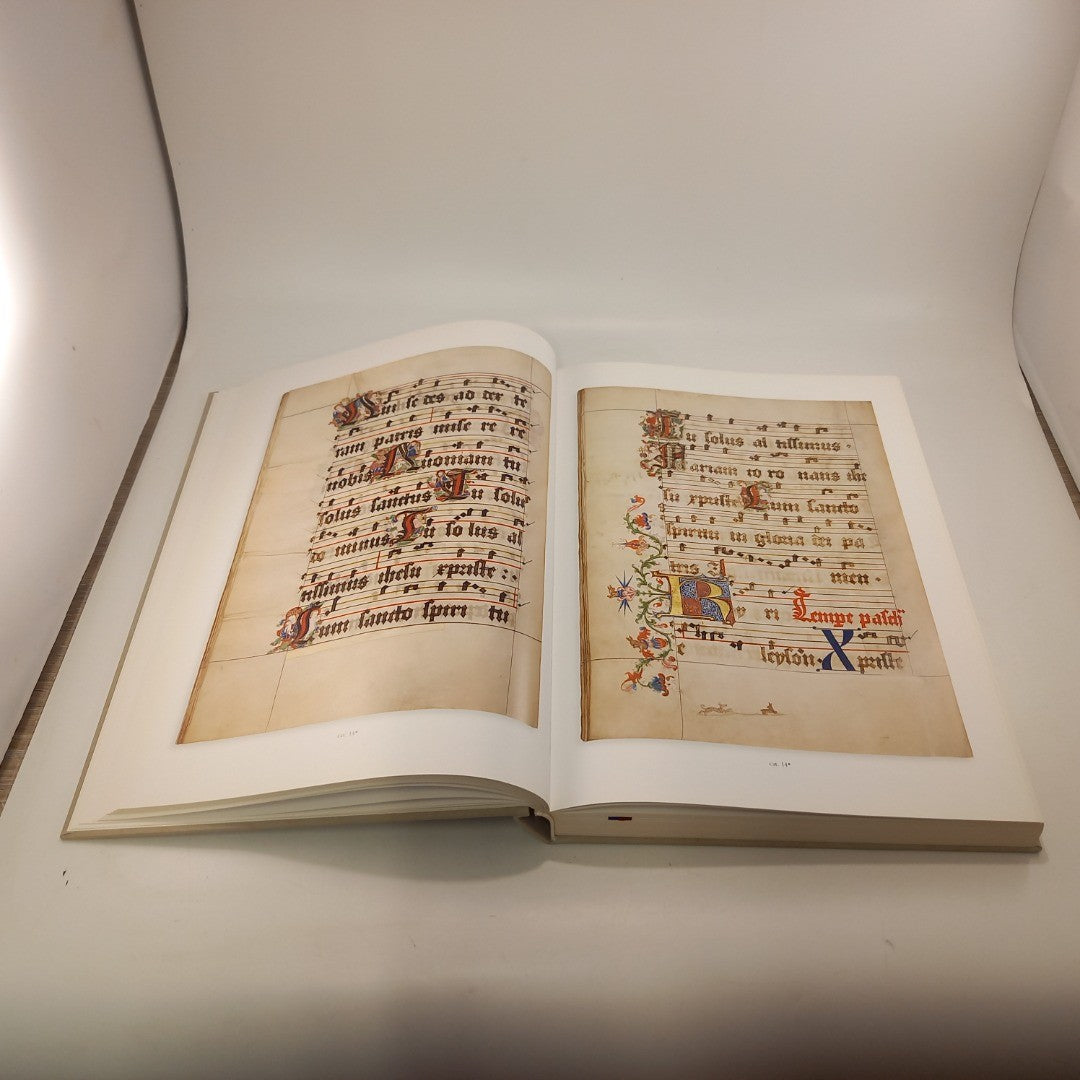 Qui se des ad dex te
ram patris mise re re
nobis Quoniam tu
solus sanctus Tu solus
do minus Tu so lus al
tissimus ihesu xpriste :
Cum sancto spiri tu
Tu solus al tissimus .
Mariam co ro nans ihe
su xpriste Cum sancto
spiritu in gloria dei pa
tris A men .
Ky ri Tempe pasch
e leyson . Xpriste